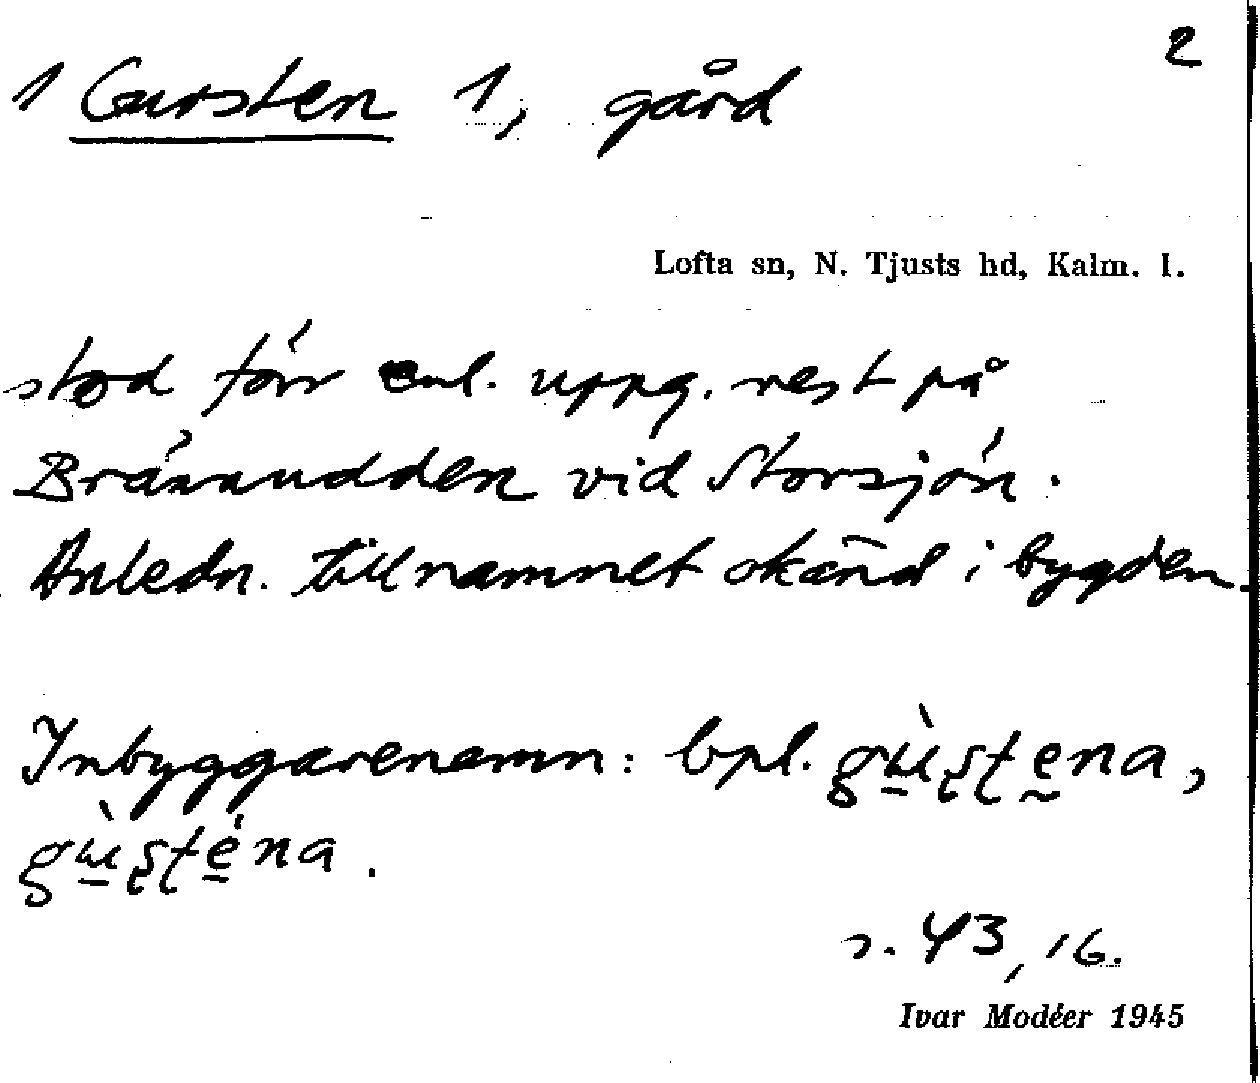 2
1 Gursten 1, gård
Lofta sn, N. Tjusts hd, Kalm. l.
stod förr enl. uppg. vest på
Brännudden vid Storsjön.
Anledn. till namnet okänd i bygden.
Inbyggarenamn: bpl.
s. 43, 16.
Ivar Modéer 1945